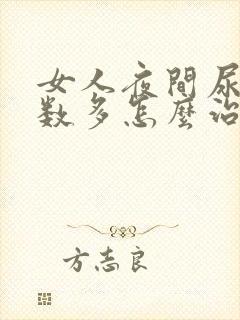 女人夜間尿
数多怎麼治
方志良